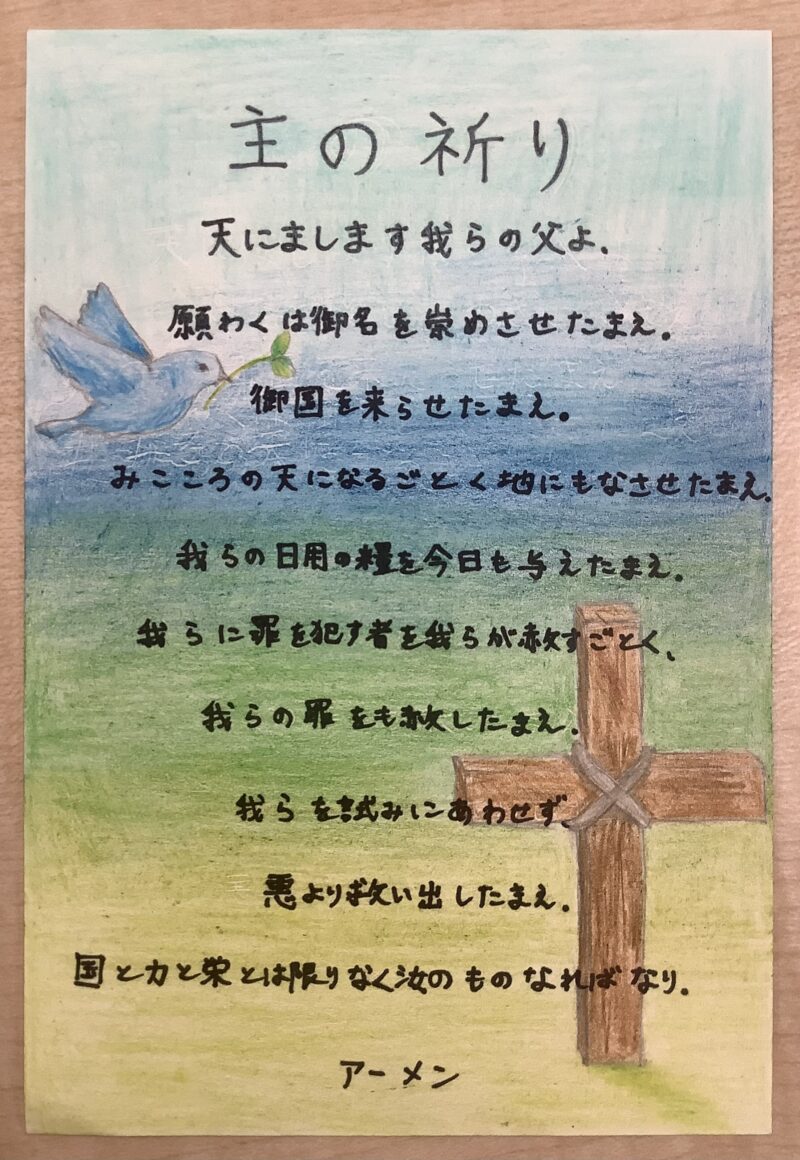 主の祈り
天にまします我らの父よ.
願わくは御名を崇めさせたまえ。
御国を来らせたまえ。
みこころの天になるごとく地にもなさせたまえ.
我らの日用の糧を今日も与えたまえ.
我らに罪を犯す者を我らが赦すごとく、
我らの罪をも赦したまえ.
我らを試みにあわせず、
悪より救い出したまえ.
国と力と栄とは限りなく汝のものなればなり.
アーメン